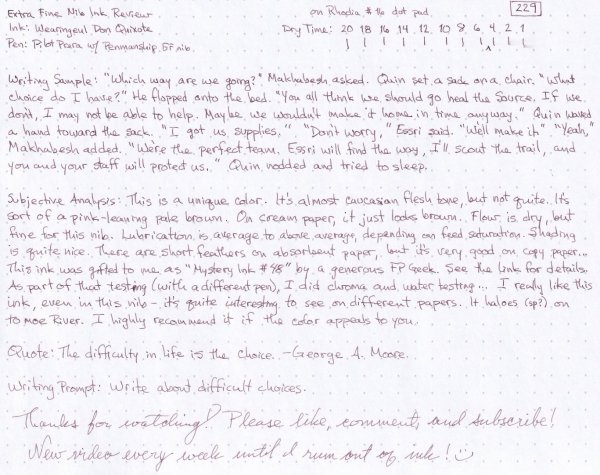 Extra Fine Nib Ink Review
on Rhodia #16 dot pad
229
Ink: Wearingeul Don Quixote
Dry Time: 20 18 16 14 12 10 8 6 4 2 1
Pen: Pilot Prera w/ Penmanship EF nib.
Writing Sample: "Which way are we going?" Makhabesh asked. Quin set a sack on a chair. "What
choice do I have?" He flopped onto the bed. "You all think we should go heal the Source. If we
don't, I may not be able to help. Maybe we wouldn't make it home in time anyway." Quin waved
a hand toward the sack. "I got us supplies." "Don't worry," Essri said. "We'll make it." "Yeah,"
Makhabesh added. "We're the perfect team. Essri will find the way, I'll scout the trail, and
you and your staff will protect us." Quin nodded and tried to sleep.
Subjective Analysis: This is a unique color. It's almost caucasian flesh tone, but not quite. It's
sort of a pink-leaning pale brown. On cream paper, it just looks brown. Flow is dry, but
fine for this nib. Lubrication is average to above average, depending on feed saturation. Shading
is quite nice. There are short feathers on absorbent paper, but it's very good on copy paper...
This ink was gifted to me as "Mystery Ink #98" by a generous FP Geek. See the link for details.
As part of that testing (with a different pen), I did chroma and water testing... I really like this
ink, even in this nib - it's quite interesting to see on different papers. It haloes (sp?) on
Tomoe River. I highly recommend it if the color appeals to you.
Quote: The difficulty in life is the choice. -George A. Moore.
Writing Prompt: Write about difficult choices.
Thanks for watching! Please like, comment, and subscribe!
New video every week until I run out of ink! :)